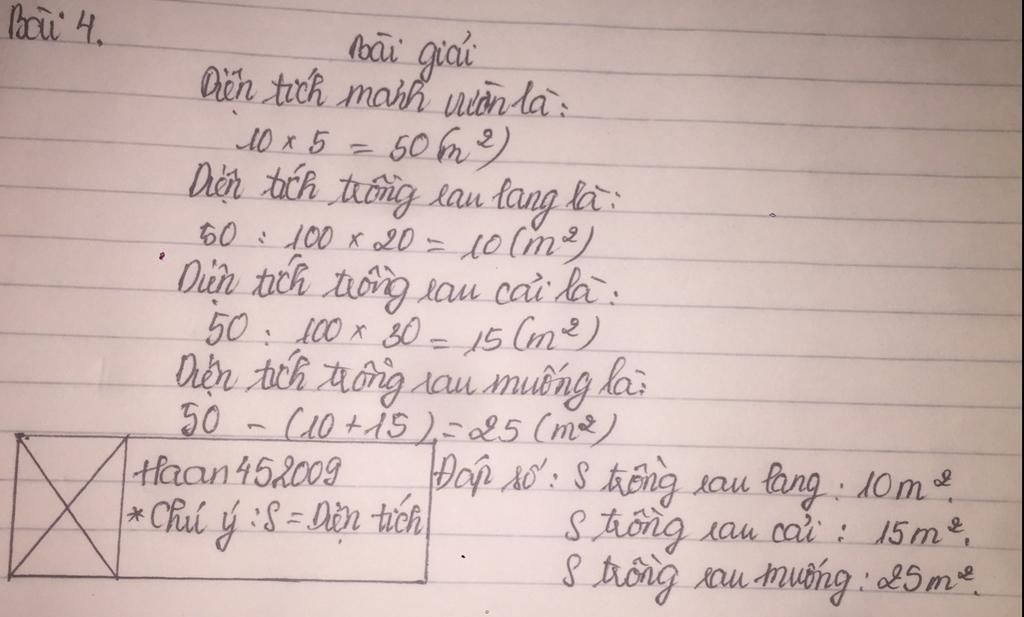 Bài 4.
Bài giải
Diện tích mảnh vườn là:
10 × 5 = 50 (m²)
Diện tích trồng rau lang là:
50 : 100 × 20 = 10 (m²)
Diện tích trồng rau cải là:
50 : 100 × 30 = 15 (m²)
Diện tích trồng rau muống là:
50 - (10 + 15) = 25 (m²)
Đáp số: S trồng rau lang: 10m².
S trồng rau cải: 15m².
S trồng rau muống: 25m².
Haan452009
* Chú ý: S = Diện tích